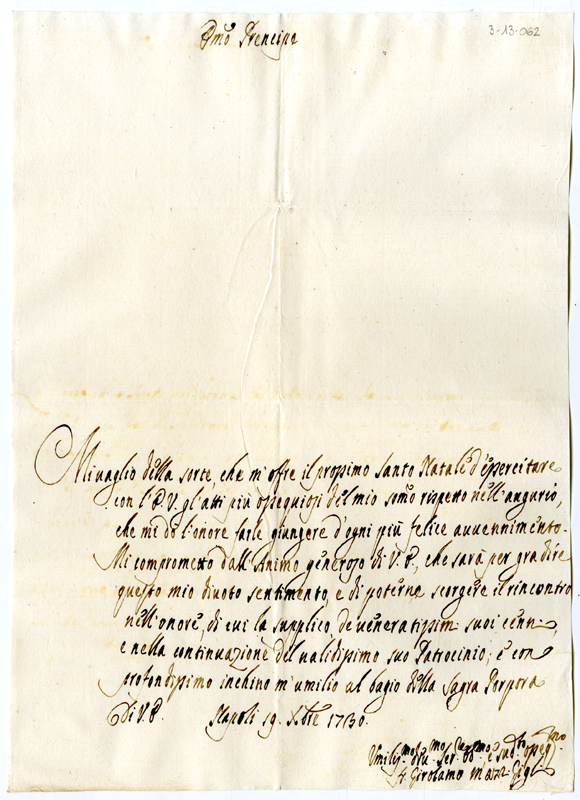 3-13-062
Emo Prencipe
Mi vaglio della sorte, che m'offre il prossimo Santo Natale d'essercitare
con l'E.V. gl'atti più ossequiosi del mio sommo rispetto nell'augurio,
che mi dò l'onore farle giungere d'ogni più felice avvenimento.
Mi comprometto dall'Animo generoso di V.E., che sarà per gradire
questo mio divoto sentimento, e di poterne scorgere il rincontro
nell'onore, di cui la supplico, de veneratissimi suoi cenni,
e nella continuazione del validissimo suo Patrocinio; e con
profondissimo inchino m'umilio al bagio della Sagra Porpora
Di V.E. Napoli 19 Xbre 1730.
Umiliss.mo Ser.
Girolamo